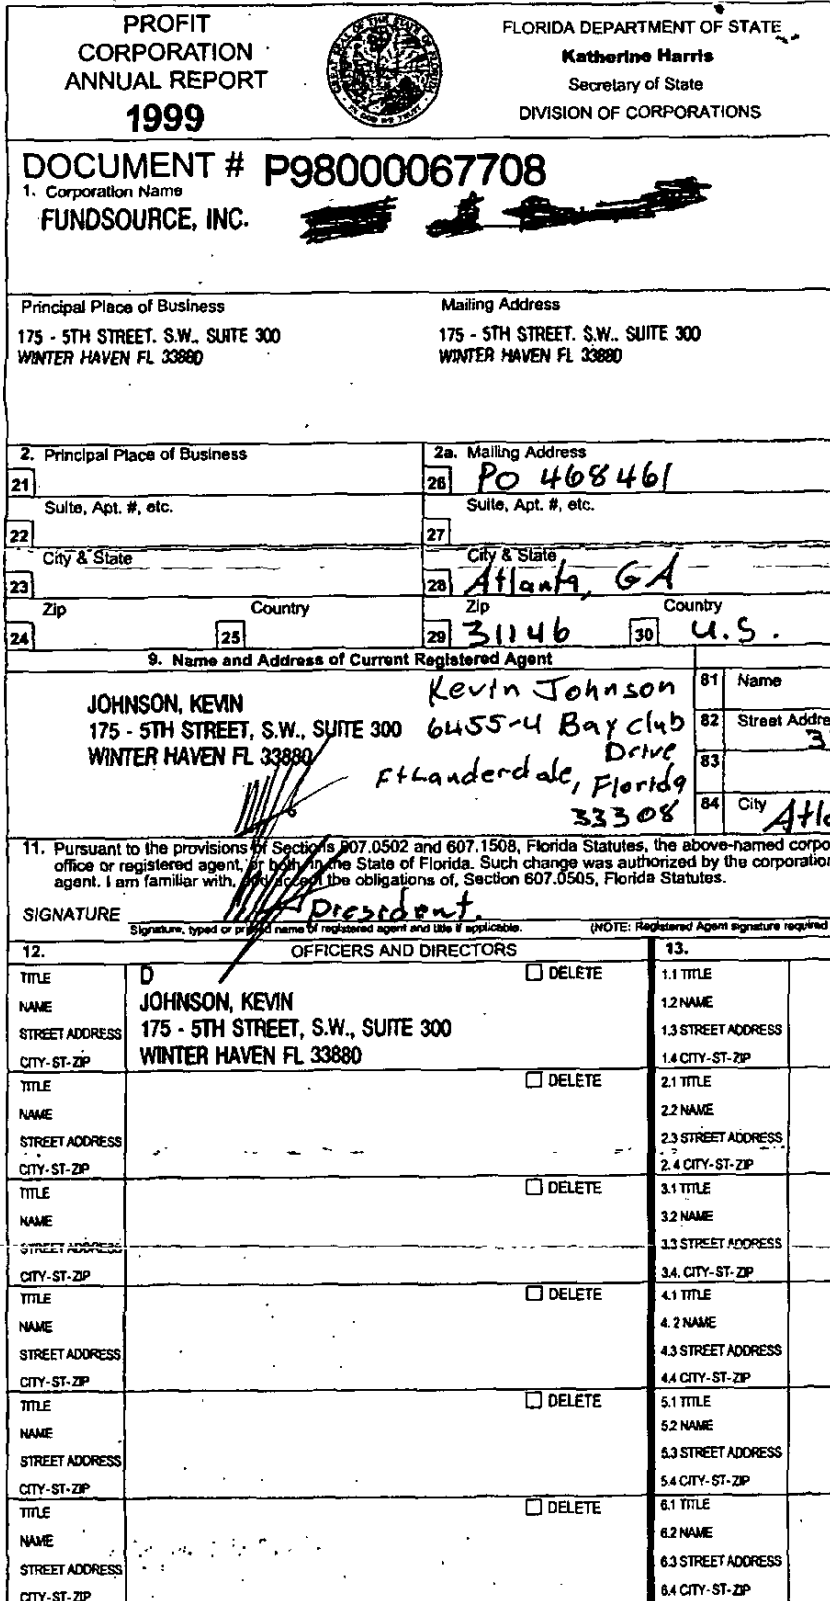 PROFIT
CORPORATION
ANNUAL REPORT
1999
FLORIDA DEPARTMENT OF STATE
Katherine Harris
Secretary of State
DIVISION OF CORPORATIONS
DOCUMENT # P98000067708
1. Corporation Name
FUNDSOURCE, INC.
Principal Place of Business
175 - 5TH STREET. S.W.. SUITE 300
WINTER HAVEN FL 33880
Mailing Address
175 - 5TH STREET. S.W.. SUITE 300
WINTER HAVEN FL 33880
2. Principal Place of Business
2a. Mailing Address
21
26 PO 468461
Suite, Apt. #, etc.
Suite, Apt. #, etc.
22
27
City & State
City & State
23
28 Atlanta, GA
Zip
Country
Zip
Country
24
25
29 31146
30 U.S.
9. Name and Address of Current Registered Agent
JOHNSON, KEVIN
175 - 5TH STREET, S.W., SUITE 300
WINTER HAVEN FL 33880
Kevin Johnson
6455-4 Bay club
Drive
Ft Lauderdale, Florida
33308
81 Name
82 Street Addre
3
83
84 City Atl
11. Pursuant to the provisions of Sections 607.0502 and 607.1508, Florida Statutes, the above-named corpo
office or registered agent, or both, in the State of Florida. Such change was authorized by the corporation
agent. I am familiar with, and accept the obligations of, Section 607.0505, Florida Statutes.
SIGNATURE President.
Signature, typed or printed name of registered agent and title if applicable.
(NOTE: Registered Agent signature required
12. OFFICERS AND DIRECTORS
13.
TITLE D DELETE
NAME JOHNSON, KEVIN
STREET ADDRESS 175 - 5TH STREET, S.W., SUITE 300
CITY-ST-ZIP WINTER HAVEN FL 33880
1.1 TITLE
1.2 NAME
1.3 STREET ADDRESS
1.4 CITY-ST-ZIP
TITLE DELETE
NAME
STREET ADDRESS
CITY-ST-ZIP
2.1 TITLE
2.2 NAME
2.3 STREET ADDRESS
2.4 CITY-ST-ZIP
TITLE DELETE
NAME
STREET ADDRESS
CITY-ST-ZIP
3.1 TITLE
3.2 NAME
3.3 STREET ADDRESS
3.4. CITY-ST-ZIP
TITLE DELETE
NAME
STREET ADDRESS
CITY-ST-ZIP
4.1 TITLE
4.2 NAME
4.3 STREET ADDRESS
4.4 CITY-ST-ZIP
TITLE DELETE
NAME
STREET ADDRESS
CITY-ST-ZIP
5.1 TITLE
5.2 NAME
5.3 STREET ADDRESS
5.4 CITY-ST-ZIP
TITLE DELETE
NAME
STREET ADDRESS
CITY-ST-ZIP
6.1 TITLE
6.2 NAME
6.3 STREET ADDRESS
6.4 CITY-ST-ZIP